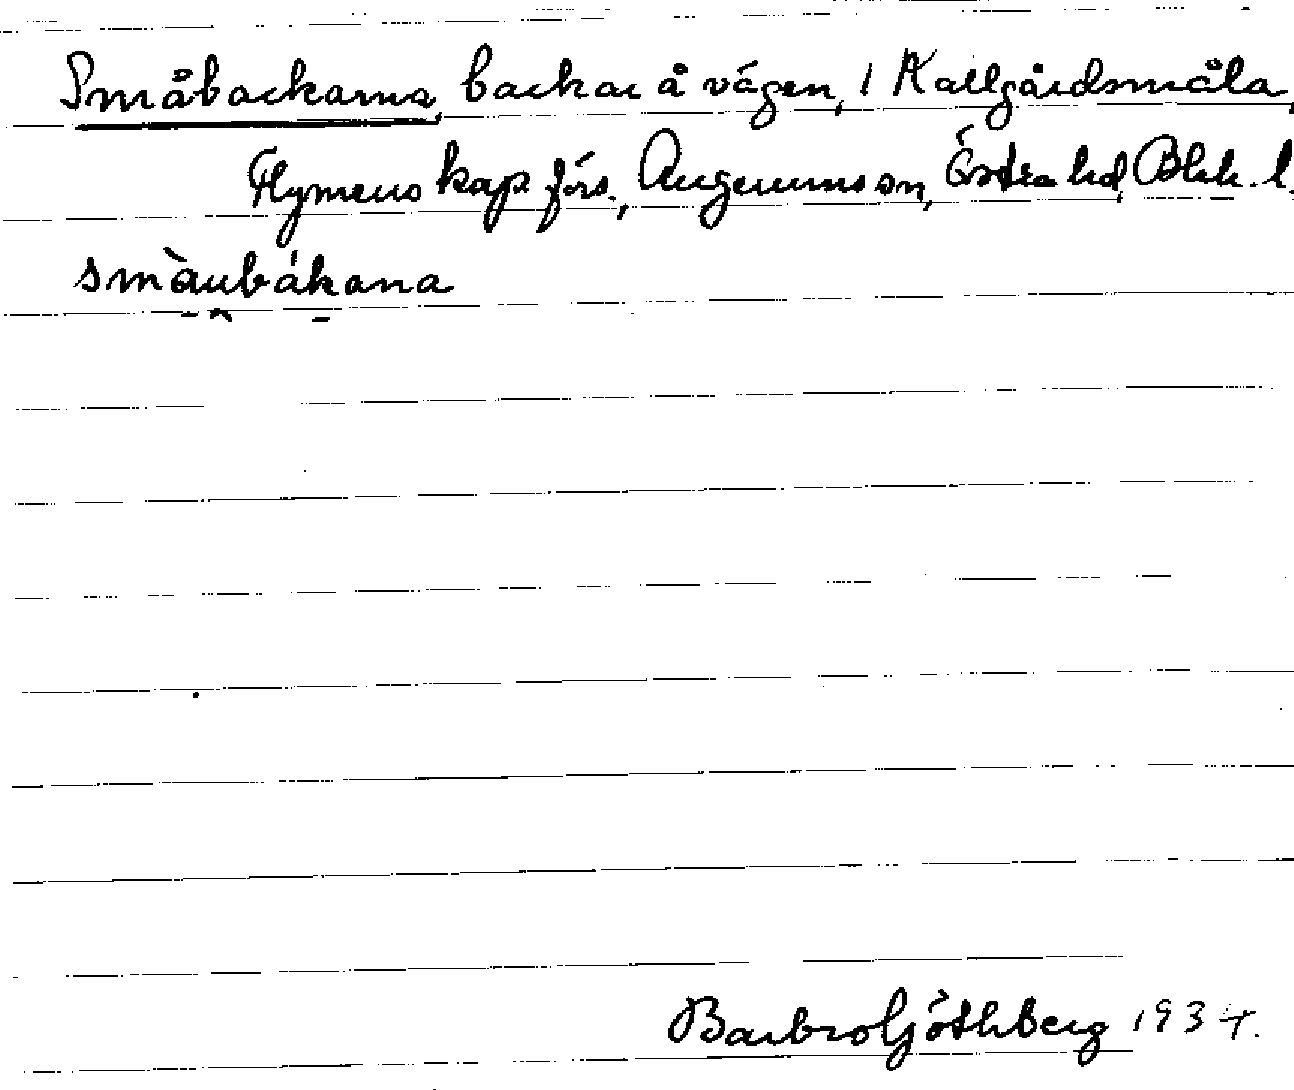 Småbackarna, backar å vägen, i Kallgårdsmåla,
Flymens kap förs., Augerums sn, Östra hd, Blek. l.
smàubákana
Barbro Göthberg 1934.